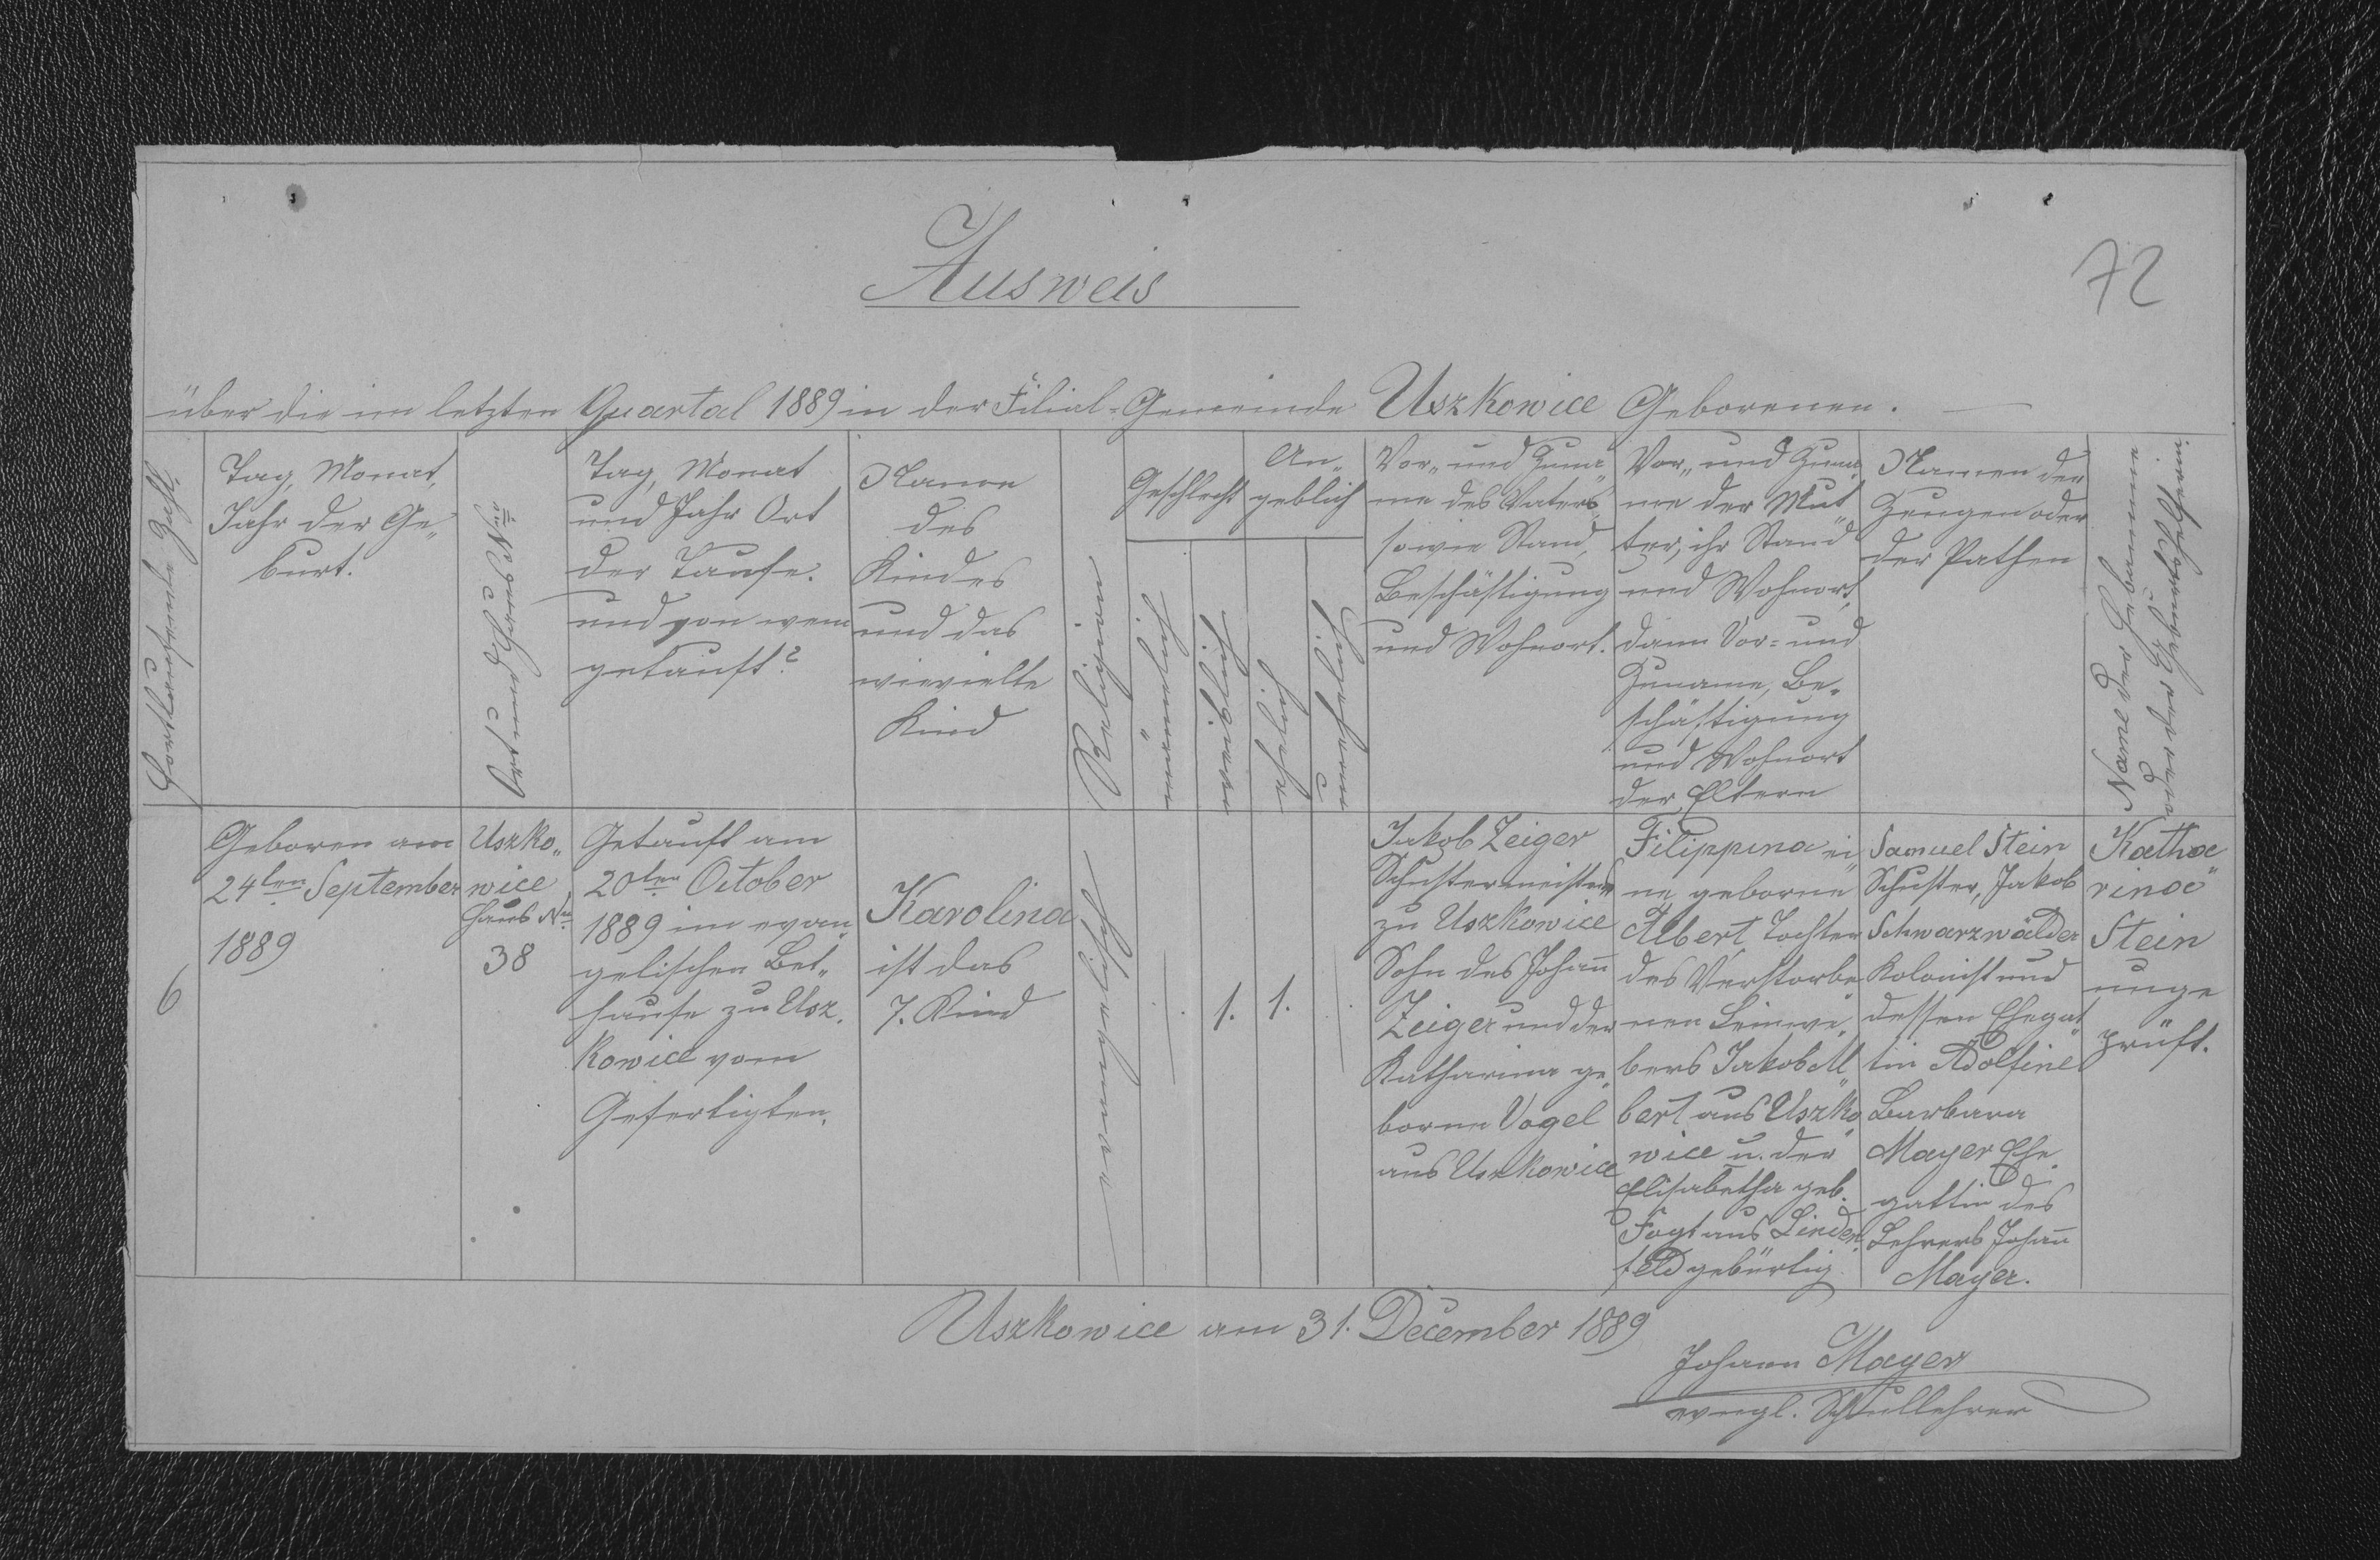 Ausweis
72
über die im letzten Quartal 1889 in der Filial-Gemeinde Uszkowice Geborenen.
Fortlaufende Zahl
Tag, Monat,
Jahr der Ge„
burt.
Ort und Haus Nro
Tag, Monat
und Jahr Ort
der Taufe.
und von wem
getauft?
Name
des
Kindes
und das
wievielte
Kind
Religion
Geschlecht
männlich
weiblich
An„
geblich
ehelich
unehelich
Vor„ und Zuna„
me des Vaters,
sowie Stand,
Beschäftigung
und Wohnort.
Vor„ und Zuna„
me der Mut„
ter, ihr Stand
und Wohnort,
dann Vor= und
Zuname, Be„
schäftigung
und Wohnort
der Eltern
Namen der
Zeugen oder
der Pathen
Name der Hebamme
oder der Geburtshelferin
6
Geboren am
24ten September
1889
Uszko„
wice
Haus Nro
38
Getauft am
20ten October
1889 im evan„
gelischen Bet„
hause zu Usz„
kowice vom
Gefertigten.
Karolina
ist das
7. Kind
evangelisch
1.
1.
Jakob Zeiger
Schustermeister
zu Uszkowice
Sohn des Johann
Zeiger und der
Katharina ge„
borne Vogel
aus Uszkowice
Filippina ei„
ne geborne
Albert Tochter
des Verstorbe„
nen Leinwe„
bers Jakob Al„
bert aus Uszko„
wice u. der
Elisabetha geb.
Fogt aus Linden„
feld gebürtig.
Samuel Stein
Schuster, Jakob
Schwarzwälder
Kolonist und
dessen Ehegat„
tin Adolfine
Barbara
Mayer Ehe„
gattin des
Lehrers Johann
Mayer.
Katha„
rina
Stein
unge„
prüft.
Uszkowice am 31. December 1889
Johann Mayer
evngl. Schullehrer